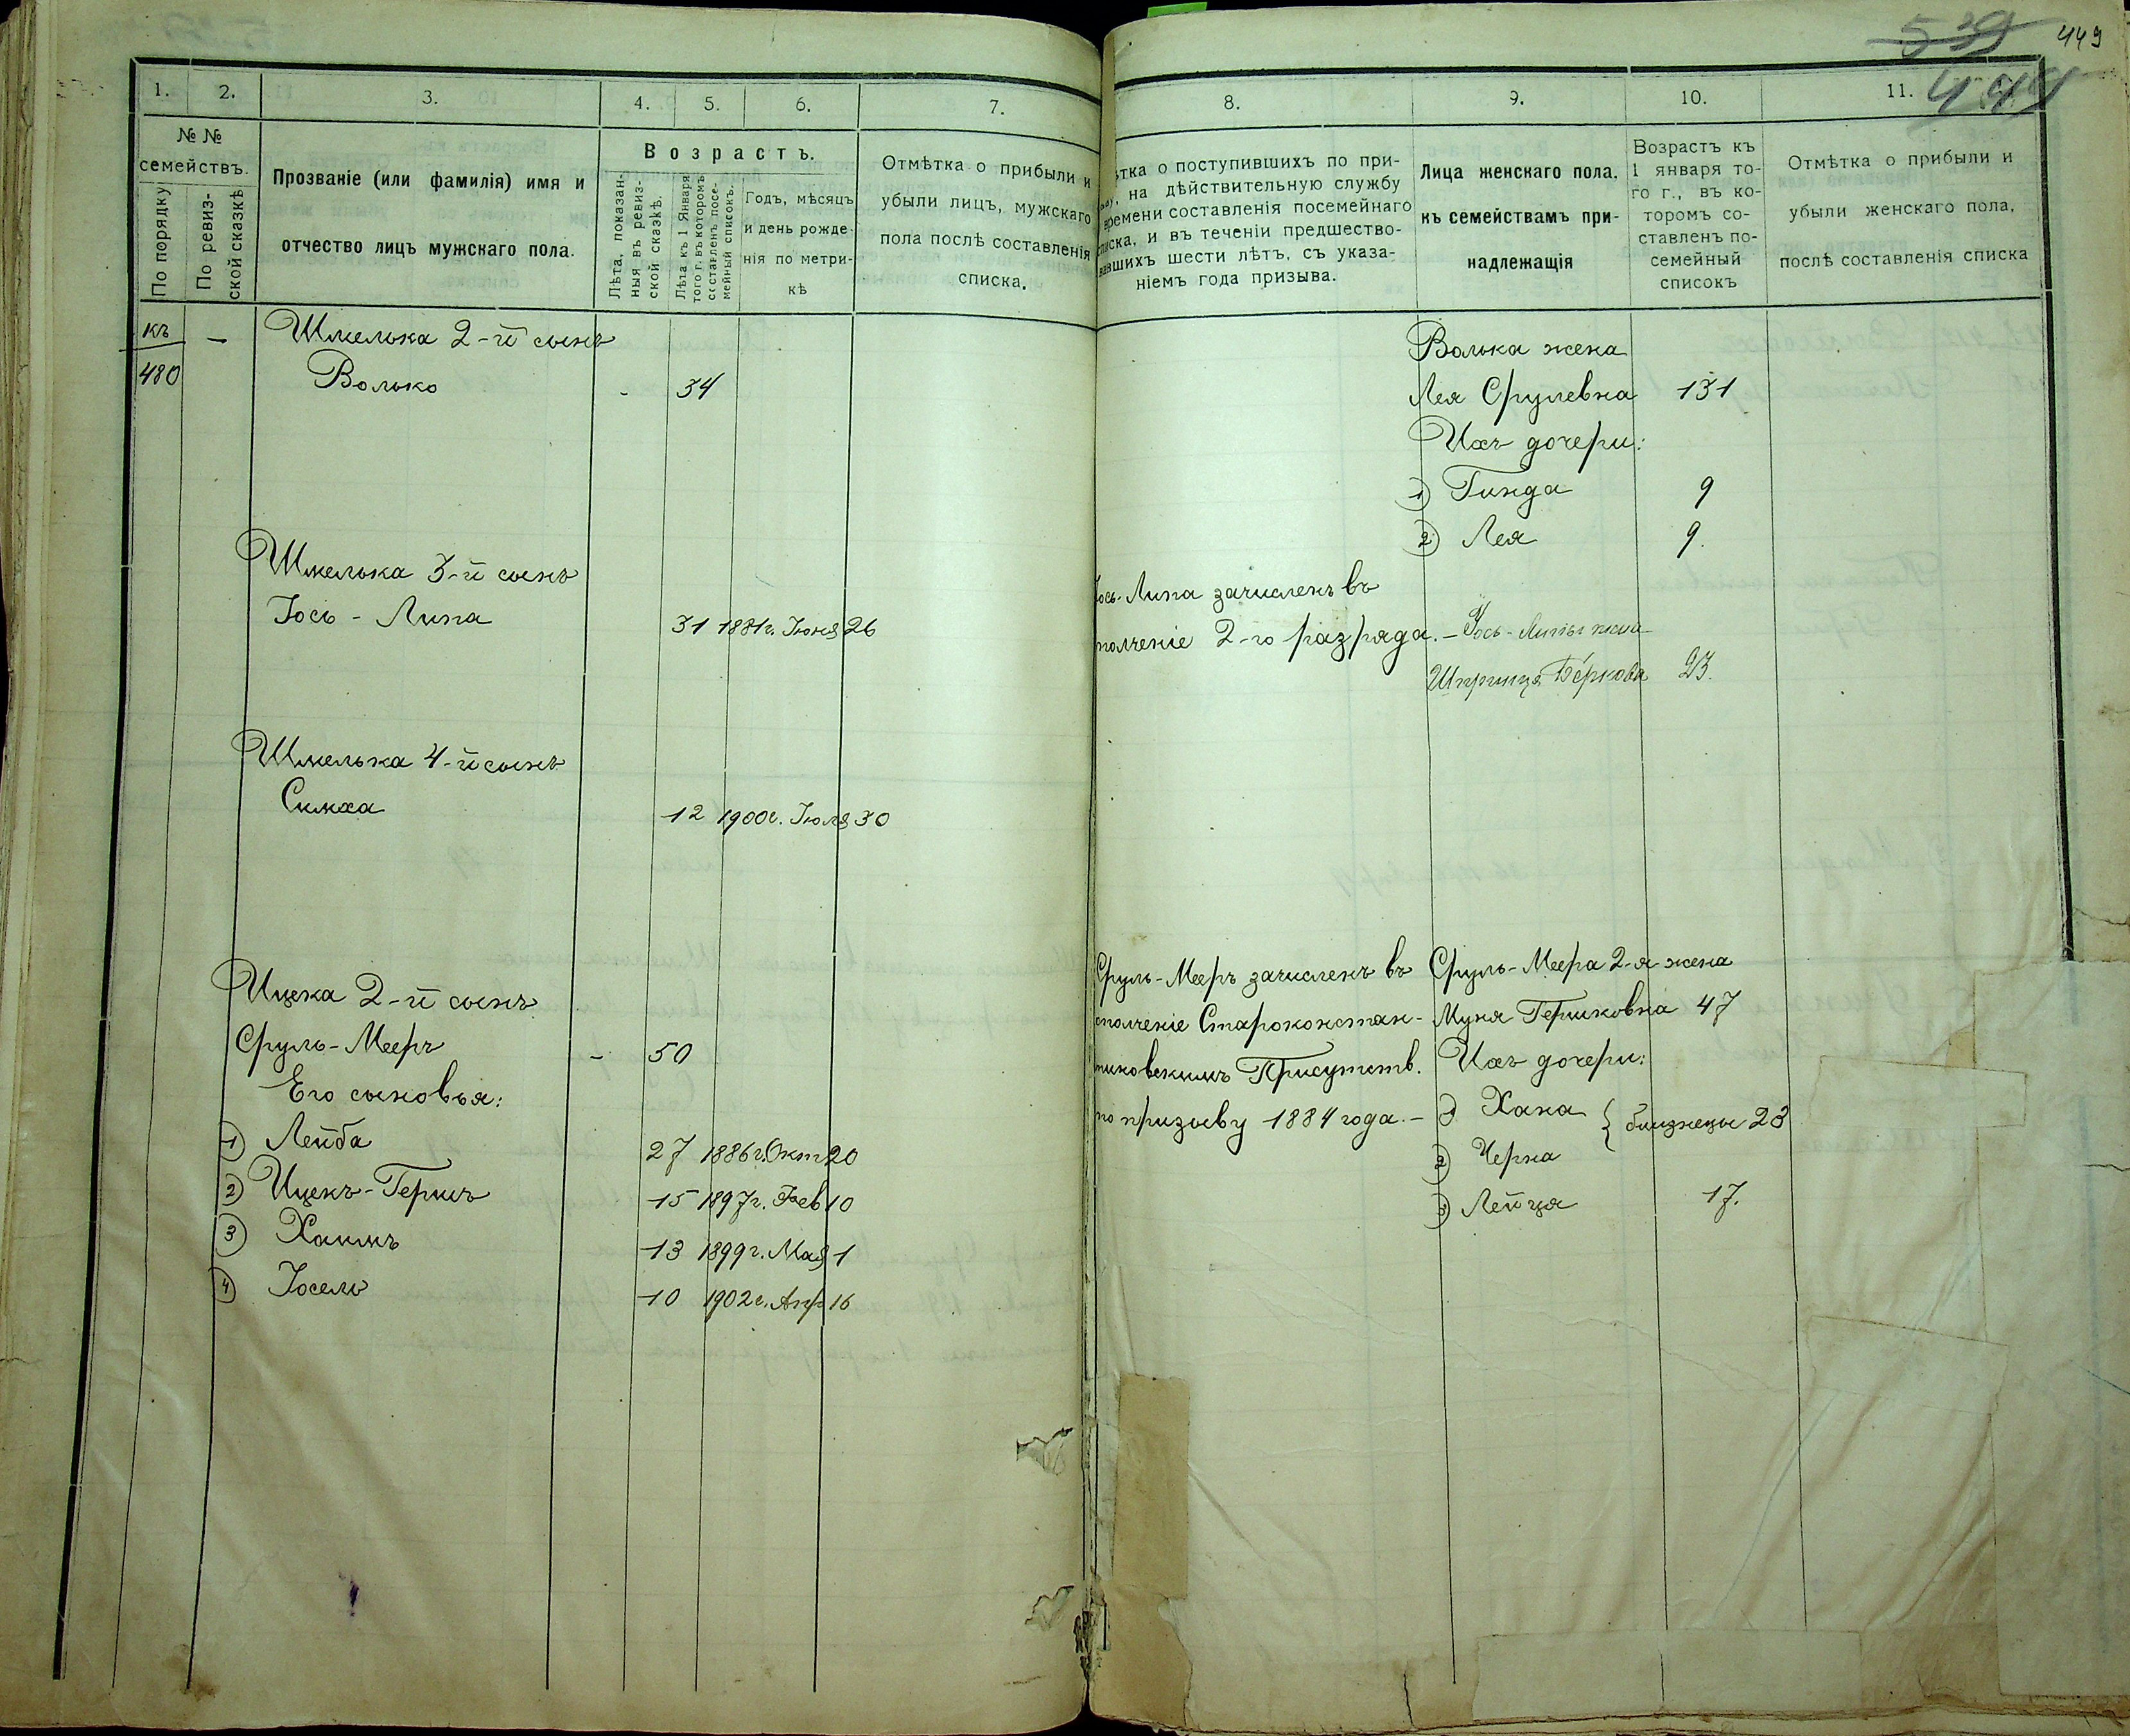 539
449
444
1.
2.
3.
4.
5.
6.
7.
№ №
семействъ.
По порядку
По ревиз-
ской сказкѣ
Прозваніе (или фамилія) имя и
отчество лицъ мужскаго пола.
Возрастъ.
Лѣта, показан-
ныя въ ревиз-
ской сказкѣ.
Лѣта къ 1 Января
того г. въ которомъ
составленъ посе-
мейный списокъ.
Годъ, мѣсяцъ
и день рожде-
нія по метри-
кѣ
Отмѣтка о прибыли и
убыли лицъ, мужскаго
пола послѣ составленія
списка.
къ
480
—
Шмелька 2-й сынъ
Волько
-
34
Шмелька 3-й сынъ
Іось - Липа
31 1881г. Іюня 26
Шмелька 4-й сынъ
Симха
12 1900г. Іюля 30
Ицека 2-й сынъ
Сруль-Мееръ
-
50
Его сыновья:
1) Лейба 27 1886г. Окт 20
2) Ицекъ-Гершъ 15 1897г. Фев 10
3) Хаимъ 13 1899г. Мая 1
4) Іосель 10 1902г. Апр 16
8.
9.
10.
11.
ѣтка о поступившихъ по при-
, на дѣйствительную службу
времени составленія посемейнаго
списка, и въ теченіи предшество-
вавшихъ шести лѣтъ, съ указа-
ніемъ года призыва.
Лица женскаго пола,
къ семействамъ при-
надлежащія
Возрастъ къ
1 января то-
го г., въ ко-
торомъ со-
ставленъ по-
семейный
списокъ
Отмѣтка о прибыли и
убыли женскаго пола,
послѣ составленія списка
Волька жена
Лея Срулевна 131
Ихъ дочери:
1) Гинда 9
2) Лея 9.
Іось-Липа зачисленъ въ
полченіе 2-го разряда. — Іось-Липы жена
Шпринца Беркова 23.
Сруль-Мееръ зачисленъ въ
ополченіе Староконстан-
тиновскимъ Присутств.
по призыву 1884 года. —
Сруль-Меера 2-я жена
Муня Гершковна 47
Ихъ дочери:
1) Хана { близнецы 23
2) Черна
3) Лейця 17.